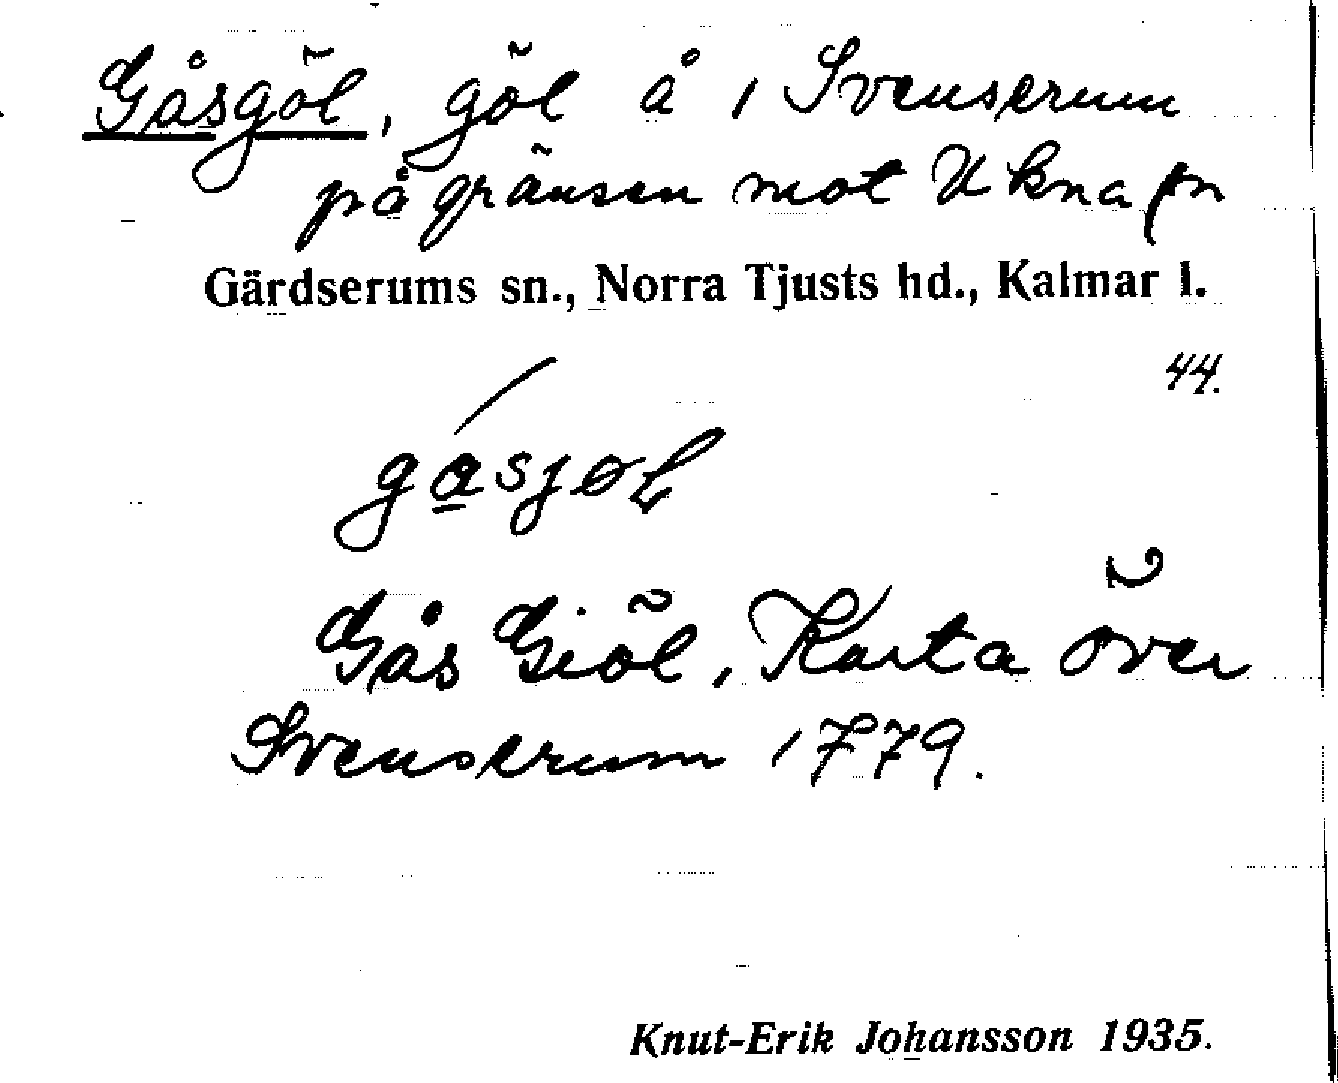 Gåsgöl, göl å 1 Svenserum
på gränsen mot Ukna sn
Gärdserums sn., Norra Tjusts hd., Kalmar l.
44.
gásjøL
Gås Giöl, Karta över
Svenserum 1779.
Knut-Erik Johansson 1935.